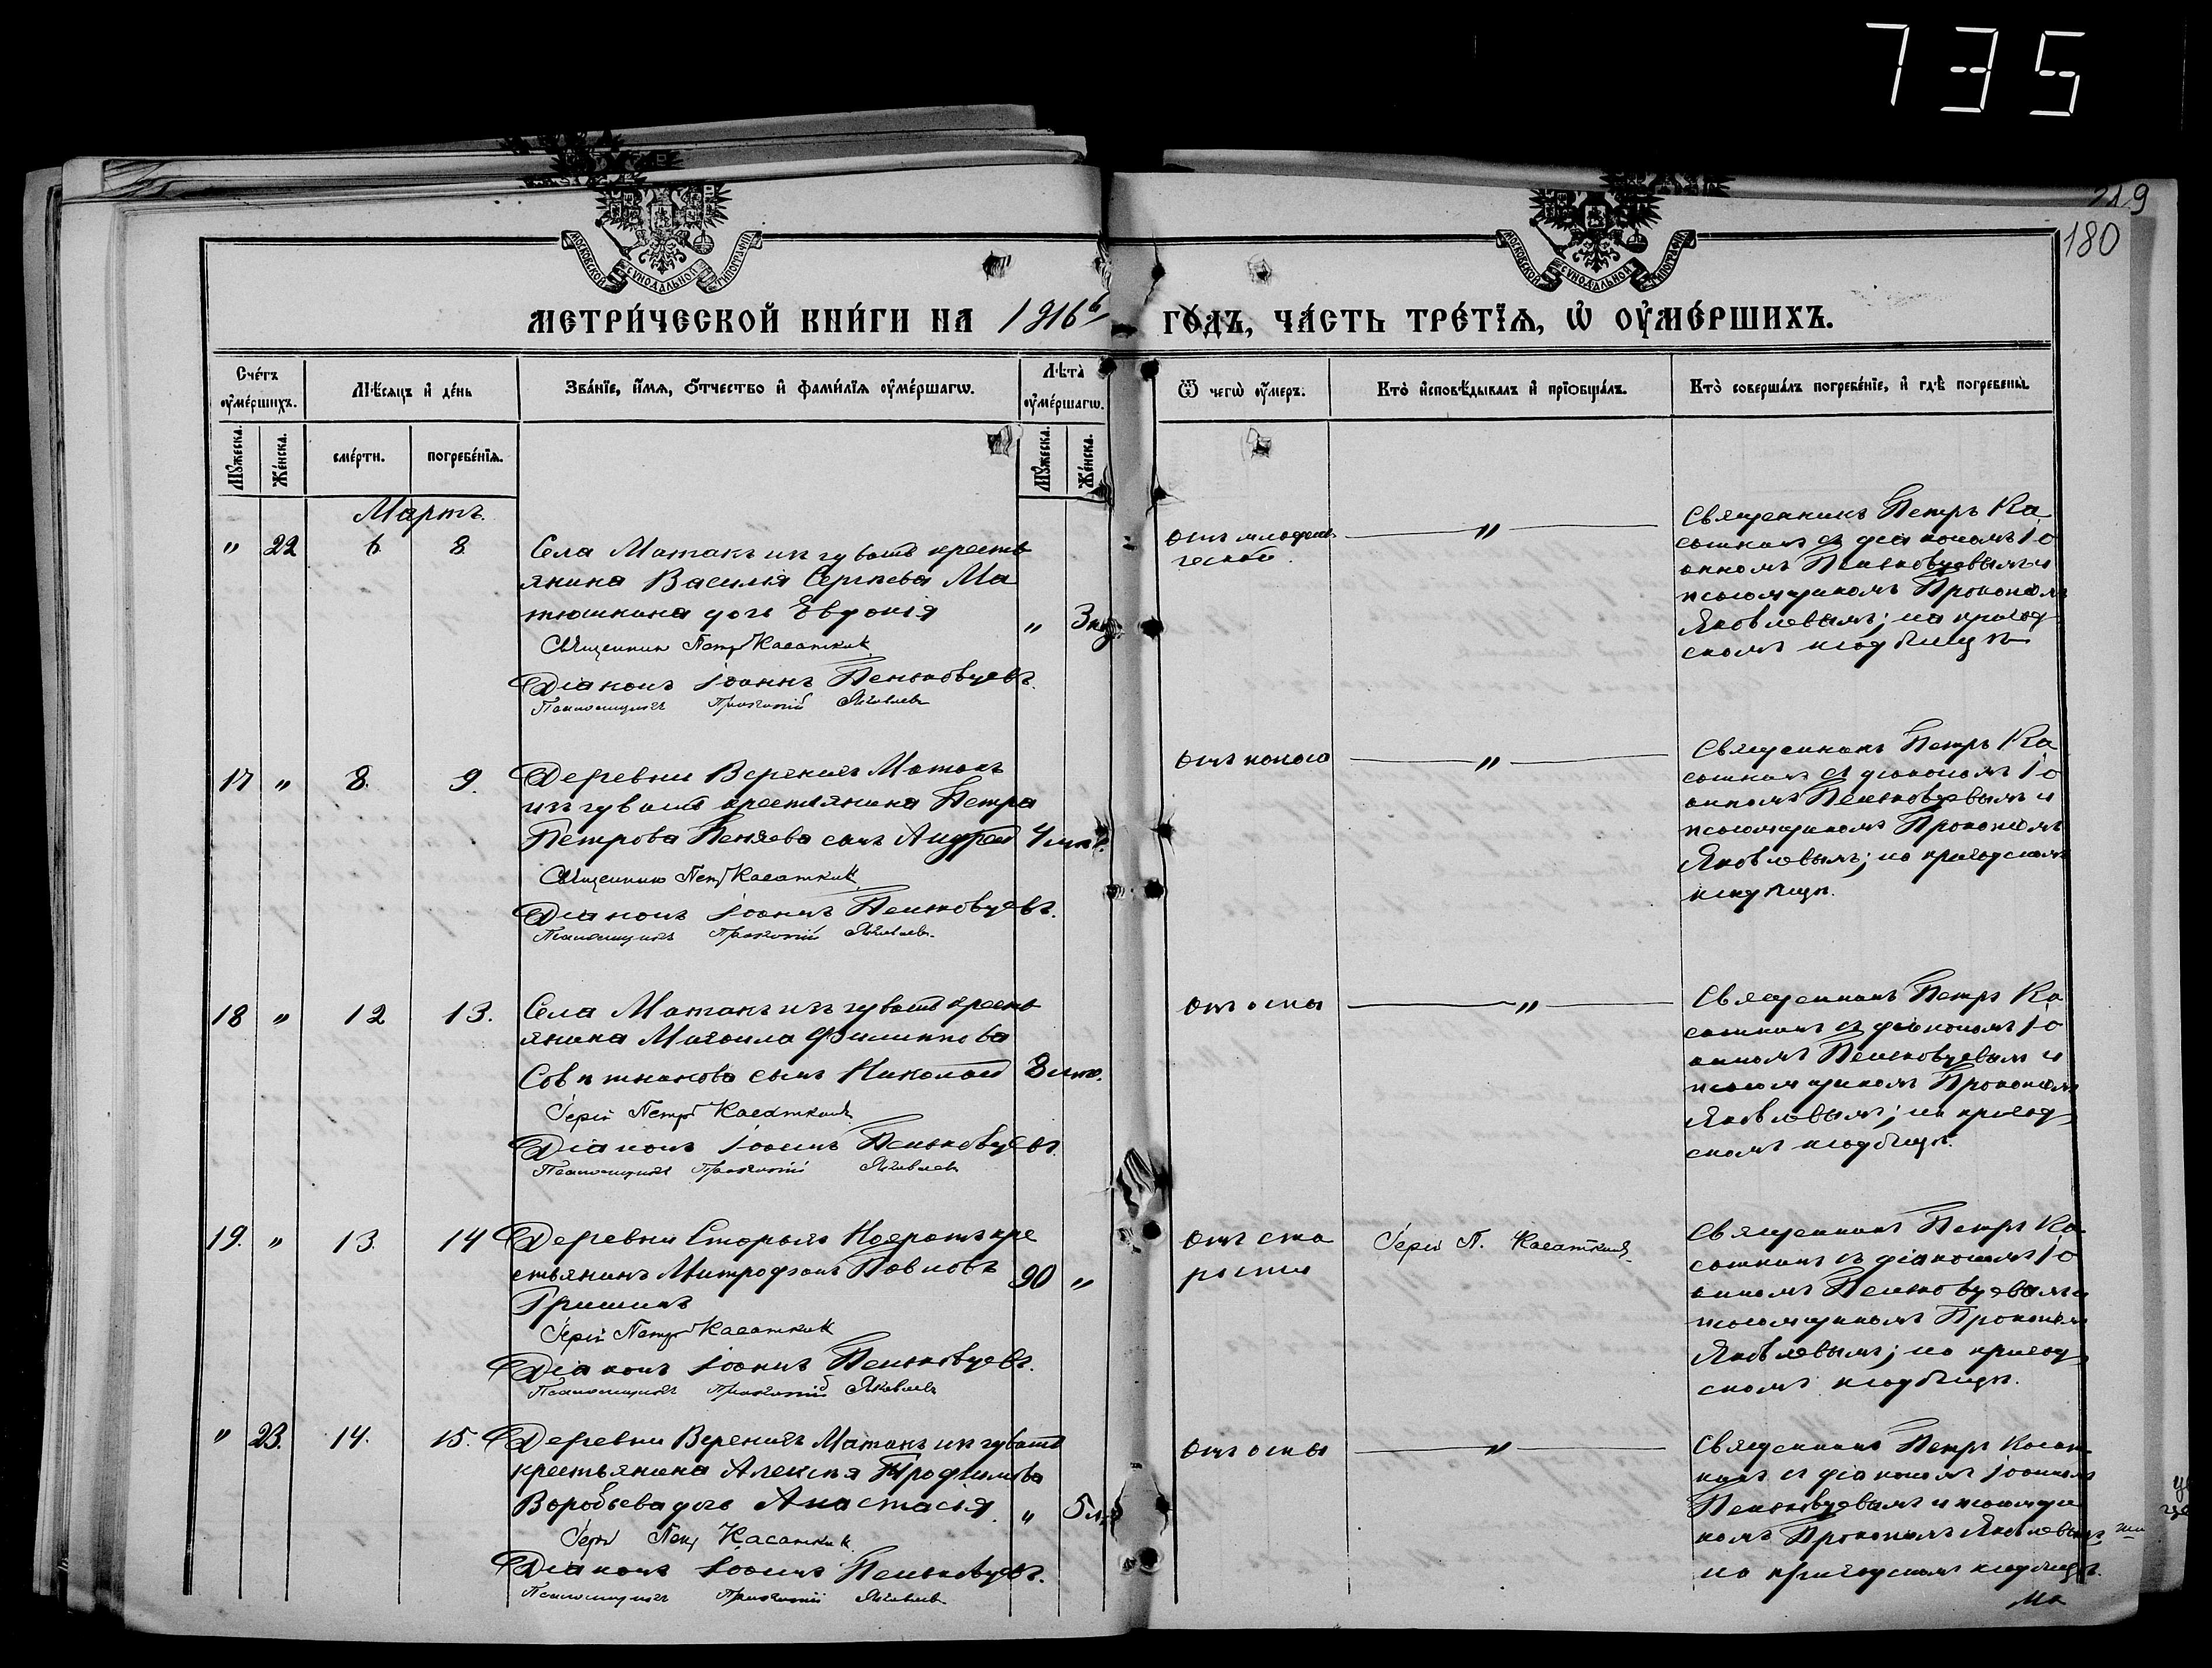 735
219
180
МОСКОВСКОЙ СѴНОДАЛЬНОЙ ТИПОГРАФІИ
МОСКОВСКОЙ СѴНОДАЛЬНОЙ ТИПОГРАФІИ
МЕТРИ́ЧЕСКОЙ КНИ́ГИ НА 1916й ГО́ДЪ, ЧА́СТЬ ТРЕ́ТЇѦ, Ѡ҆ ОУ҆МЕ́РШИХЪ.
Сче́тъ оу҆ме́ршихъ.
Мѣ́сѧцъ и҆ де́нь
Зва́нїе, и҆́мѧ, ѻ҆́тчество и҆ фами́лїѧ оу҆ме́ршагѡ.
Лѣта̀ оу҆ме́ршагѡ.
Ѿ чегѡ̀ оу҆́меръ.
Кто̀ и҆сповѣ́дывалъ и҆ прїѡбща́лъ.
Кто̀ соверша́лъ погребе́нїе, и҆ гдѣ̀ погребены̀.
Мꙋ́жеска.
Же́нска.
сме́рти.
погребе́нїѧ.
Мꙋ́жеска.
Же́нска.
Мартъ.
" 22 6 8
Села Матакъ изъ чувашъ кресть
янина Василія Сергѣева Ма
тюшкина дочь Евдокія
" 3 нед.
Священникъ Петръ Касаткинъ
Діаконъ Іоаннъ Пеньковцевъ.
Псаломщикъ Прокопій Яковлевъ
отъ младен
ческой.
"
Священникъ Петръ Ка
саткинъ съ діакономъ Іо
анномъ Пеньковцевымъ и
псаломщикомъ Прокопіемъ
Яковлевымъ; на приход
скомъ кладбищѣ
17 " 8. 9.
Деревни Верхнихъ Матакъ
изъ чувашъ крестьянина Петра
Петрова Пеняева сынъ Андрей
4 мѣс.
Священникъ Петръ Касаткинъ
Діаконъ Іоаннъ Пеньковцевъ.
Псаломщикъ Прокопій Яковлевъ.
отъ поноса
"
Священникъ Петръ Ка
саткинъ съ діакономъ Іо
анномъ Пеньковцевымъ и
псаломщикомъ Прокопіемъ
Яковлевымъ; на приходскомъ
кладбищѣ.
18 " 12 13.
Села Матакъ изъ чувашъ кресть
янина Михаила Филиппова
Совѣтникова сынъ Николай
8 мѣс.
Іерей Петръ Касаткинъ
Діаконъ Іоаннъ Пеньковцевъ.
Псаломщикъ Прокопій Яковлевъ
отъ оспы
"
Священникъ Петръ Ка
саткинъ съ діакономъ Іо
анномъ Пеньковцевымъ и
псаломщикомъ Прокопіемъ
Яковлевымъ; на приход
скомъ кладбищѣ.
19. " 13. 14
Деревни Старыхъ кре
стьянинъ Митрофанъ Павловъ
Гришинъ
90 "
Іерей Петръ Касаткинъ
Діаконъ Іоаннъ Пеньковцевъ.
Псаломщикъ Прокопій Яковлевъ
отъ ста
рости
Іерей П. Касаткинъ
Священникъ Петръ Ка
саткинъ съ діакономъ Іо
анномъ Пеньковцевымъ и
псаломщикомъ Прокопіемъ
Яковлевымъ; на приход
скомъ кладбищѣ.
" 23. 14. 15.
Деревни Верхнихъ Матакъ изъ чувашъ
крестьянина Алексѣя Трофимова
Воробьева дочь Анастасія
" 5 л.
Іерей Петръ Касаткинъ
Діаконъ Іоаннъ Пеньковцевъ.
Псаломщикъ Прокопій Яковлевъ
отъ оспы
"
Священникъ Петръ Касат
кинъ съ діакономъ Іоанномъ
Пеньковцевымъ и псаломщи
комъ Прокопіемъ Яковлевымъ
на приходскомъ кладбищѣ.